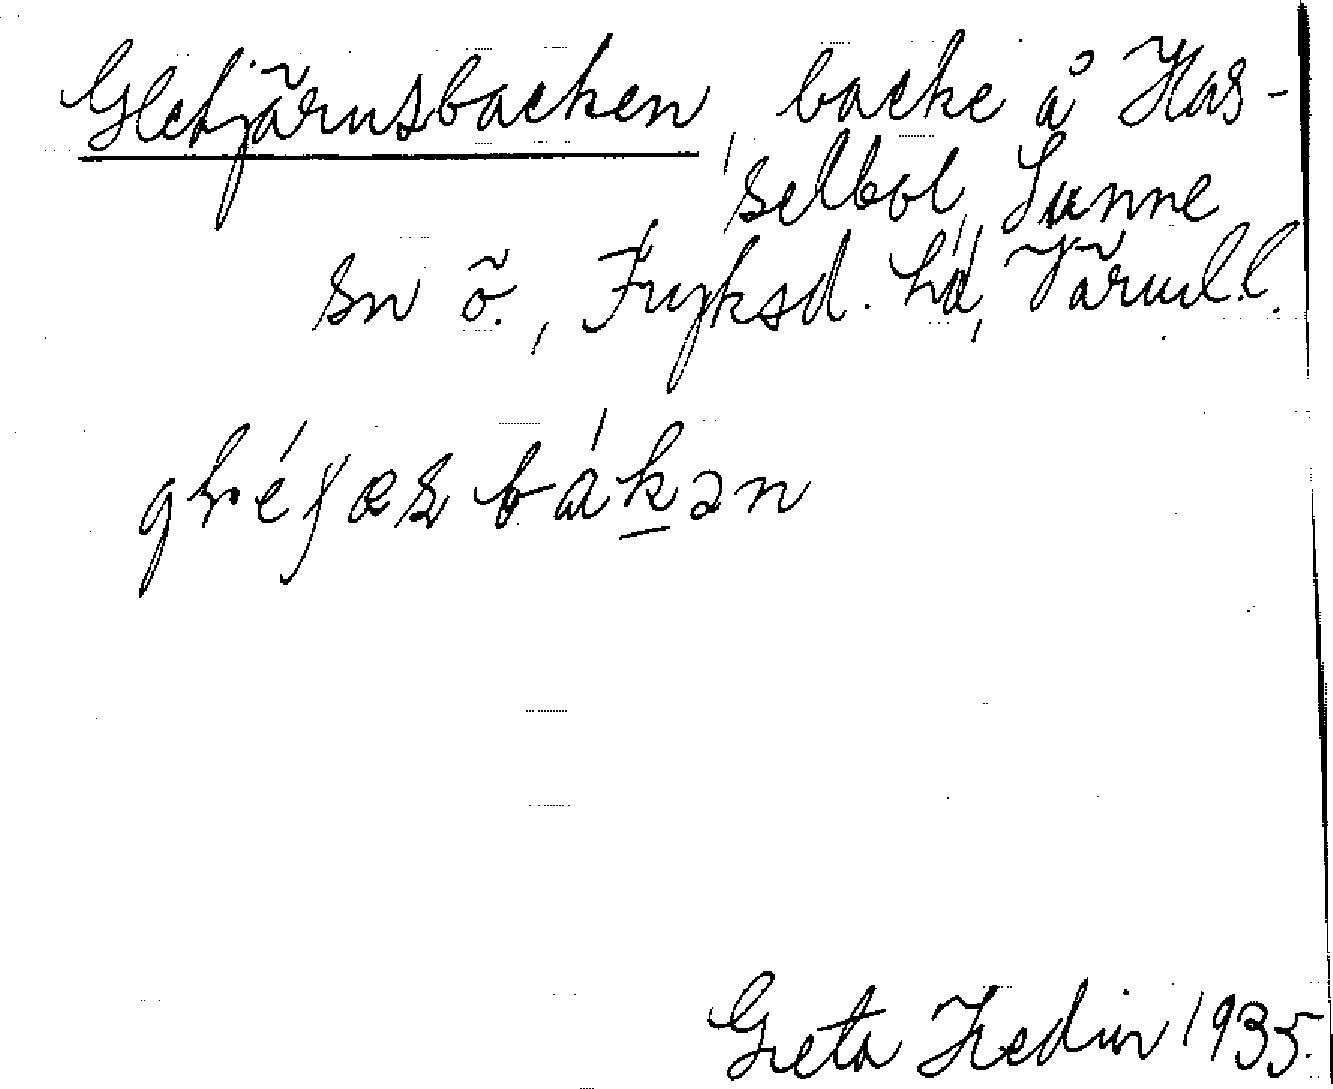 Gletjärnsbacken, backe å Has-
selbol, Sunne
sn ö., Fryksd. hd, Värml. l.
Greta Hedin 1935.